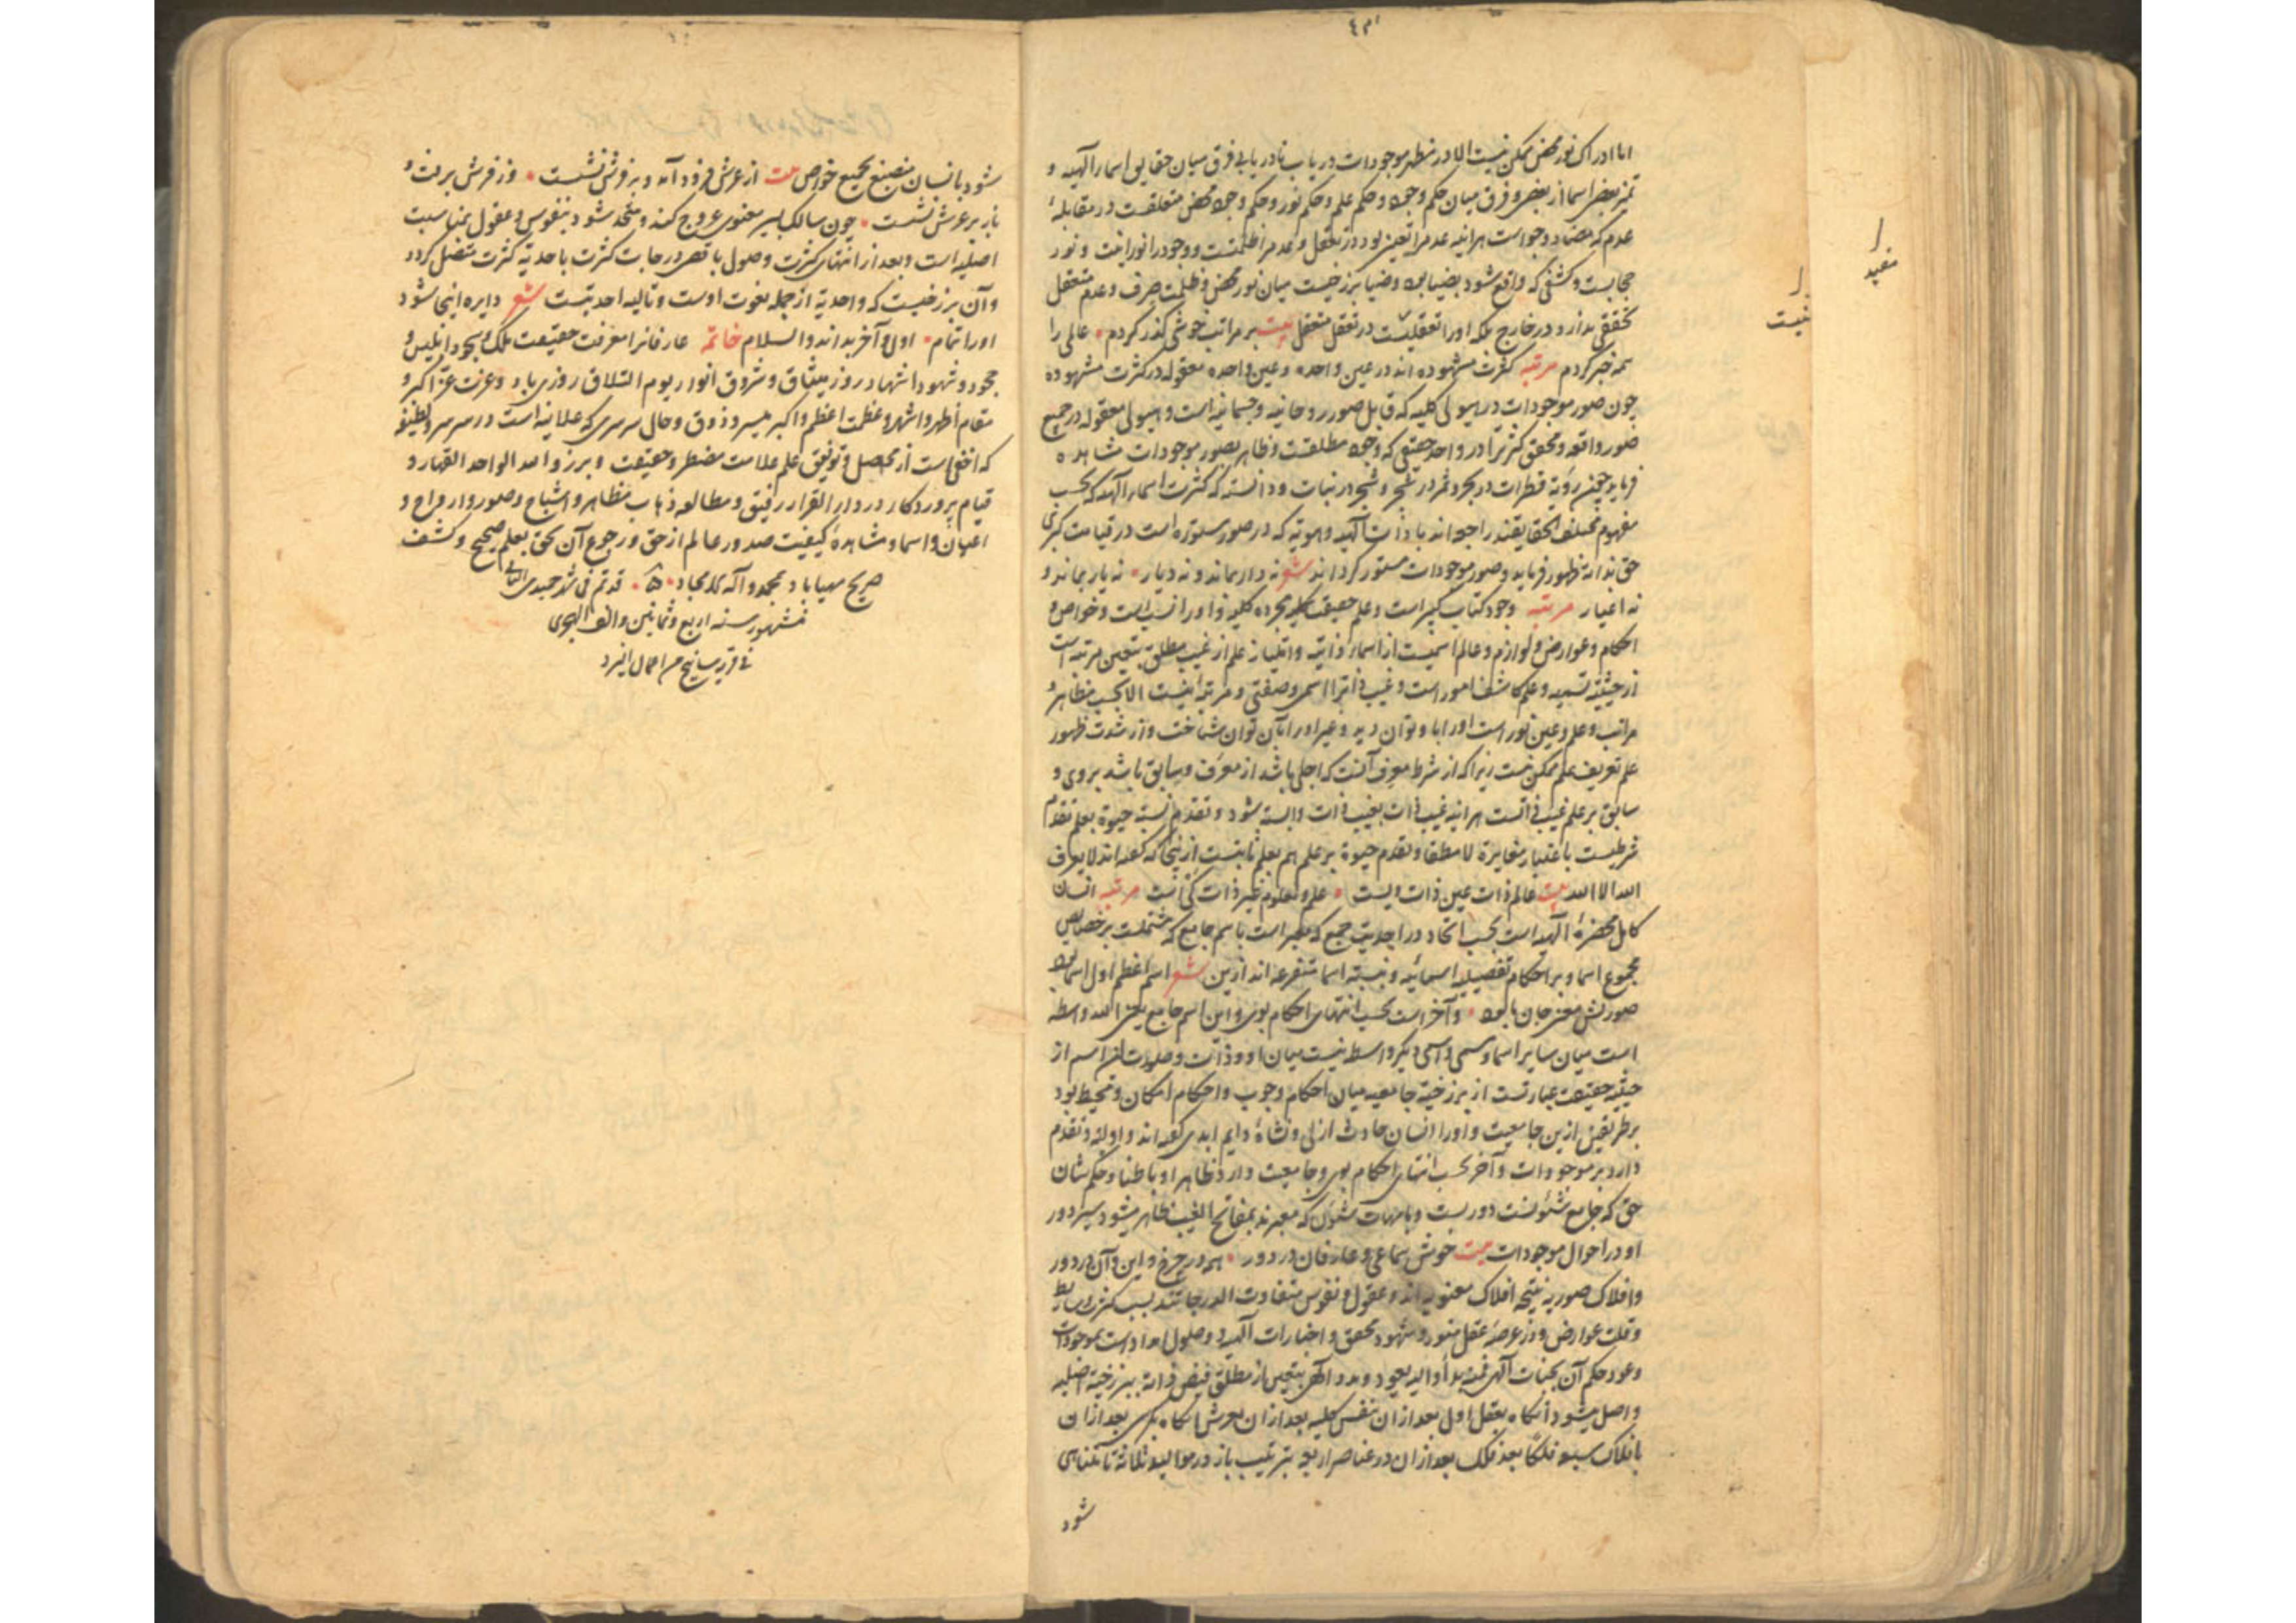 اما ادراک نور محض ممکن نیست الا در مظهر موجودات دریاب تا دریابی فرق میان حقایق اسماء آلهیه و
تمیز بعضی اسما از بعضی و فرق میان حکم وجود و حکم علم و حکم نور و حکم وجود محض متعلقست در مقابلهٔ
عدم که مضاد وجود است هر آینه عدم را تعین بود در تعقل و عدم را ظلمتست و وجود را نورانیت و نور
حجابست و کشفی که واقع شود بضیا بود و ضیا برزخیست میان نور محض و ظلمت صرف و عدم متعقل
تحققی ندارد در خارج بلکه او را تعقلیست در تعقل متعقل بیت بر مراتب خوش گذر کردم عالمی را
همه خبر کردم مرتبه کثرت مشهوده اند در عین واحده و عین واحده معقوله در کثرت مشهوده
چون صور موجودات در هیولی کلیه که قابل صور روحانیه و جسمانیه است و هیولی معقوله در جمیع
صور واقعه و محقق کثرت را در واحد حقیقی که وجود مطلقست و ظاهر بصور موجودات مشاهده
فرماید همچنین رؤیة قطرات در بحر و ثمر در شجر و شجر در نبات و دانسته که کثرت اسماء آلهیه که بحسب
مفهوم مختلف الحقایقند راجع اند با ذات آلهیه و هویة که در صور مستوره است در قیامت کبری
حق بذاته ظهور فرماید و صور موجودات مستور گرداند شعر نه دار بماند و نه دیار نه یار بماند و
نه اغیار مرتبه وجود کتاب کبیر است و علم حقیقت کلیه مجرده کلیه و او را نسب است و خواص و
احکام و عوارض و لوازم و عالم اسمیست از اسماء ذاتیه و امتیاز علم از غیب مطلق بتعین مرتبه است
از حیثیت تسمیه و علم کاشف امور است و غیب ذات را اسمی و صفتی و مرتبهٔ نیست الا بحسب مظاهر و
مراتب و علم و عین نور است او را با و توان دید و غیر او را بآن توان شناخت و از شدت ظهور
علم تعریف علم ممکن نیست زیرا که از شرط معرف آنست که اجلی باشد از معرف و سابق باشد بر وی و
سابق بر علم غیب ذاتست هر آینه غیب ذات بغیب ذات دانسته شود و تقدم نسبة حیوة بعلم تقدم
شرطیست باعتبار مغایرة لا مطلقا و تقدم حیوة بر علم هم بعلم ثابتست از اینجا که گفته اند لا یعرف
الله الا الله بیت عالم ذات عین ذات ویست علم و معلوم غیر ذات کی است مرتبه انسان
کامل حضرة آلهیه است بحسب اتحاد در احدیت جمع که معبر است باسم جامع که مشتملست بر خصایص
مجموع اسما و بر احکام تفصیلیه اسمائیه و نسبته اسما متفرعه اند ازین شعر اسم اعظم اول اسما بود
صورتش معنی جان ما بود و آخر است بحسب انتهای احکام بوی و این اسم جامع یعنی الله واسطه
است میان سایر اسما و مسمی و اسمی دیگر واسطه نیست میان او و ذات و صورت این اسم از
حیثیت حقیقت عبارتست از برزخیة جامعیه میان احکام وجوب و احکام امکان و محیط بود
بر طرفین ازین جامعیت و او را انسان حادث ازلی و نشاهٔ دایم ابدی گفته اند و اولیة و تقدم
دارد بر موجودات و آخر بحسب انتهای احکام بوی و جامعیت دارد ظاهرا و باطنا و حکم شان
حق که جامع شئونست دوریست و بامهات شئون که معبرند بمفاتح الغیب ظاهر میشود سیر دور
او در احوال موجودات بیت خوش سماعی و عارفان در دور همه در چرخ و این و آن در دور
و افلاک صوریه نتیجه افلاک معنویه اند و عقول و نفوس متفاوت الدرجاتند بسبب کثرت وسایط
و قلت عوارض و در عرصهٔ عقل منور و شهود محقق و اخبارات آلهیه و وصول امداد است بموجودات
و عود حکم آن بجناب آلهی فمنه بدأ و الیه یعود و مدد الهی بتعین از مطلق فیض ذاته ببرزخیة اصلیه
واصل میشود آنگاه بعقل اول بعد از آن بنفس کلیه بعد از آن بعرش آنگاه بکرسی بعد از آن
بافلاک سبعه فلکا بعد فلک بعد از آن در عناصر اربعه بترتیب باز در موالید ثلاثه تا متناهی
شود
نیست
مفید
شود بانسان منصبغ بجمیع خواص بیت از عرش فرود آمد و بر فرش نشست وز فرش برفت و
باز بر عرش نشست چون سالک بسیر معنوی عروج کند و متحد شود بنفوس و عقول بمناسبت
اصلیه است و بعد از انتهای کثرت وصول باقصی درجات کثرت باحدیة کثرت متصل گردد
و آن برزخیست که واحدیة از جمله نعوت اوست و تالیه احدیتست شعر دایره اینجا شود
او را تمام اول و آخر بداند والسلام خاتمه عارفانرا معرفت حقیقت ملک و سجود و ابلیس و
جحود و شهود اشهاد روز میثاق و شروق انوار یوم التلاق روزی باد و عزت عز اکبر و
مقام اطهر و اشهر و عظمت اعظم و اکبر میسر و ذوق و حال سرسری که علانیه است در سر سر و لطیفه
که اخفی است از محصل و توفیق علم علامت مضطر و حقیقت و برزوا لله الواحد القهار و
قیام پروردگار در دار القرار رفیق و مطالعه ذهاب مظاهر و اشباح و صور و ارواح و
اعیان و اسما و مشاهدهٔ کیفیت صدور عالم از حق و رجوع آن بحق بعلم صحیح و کشف
صریح مهیا باد بمحمد و آله الامجاد قد تم فی شهر جمیدی الثانی
شهور سنه اربع و ثمانین و الف الهجری
فی قریه سانیج من اعمال یزد